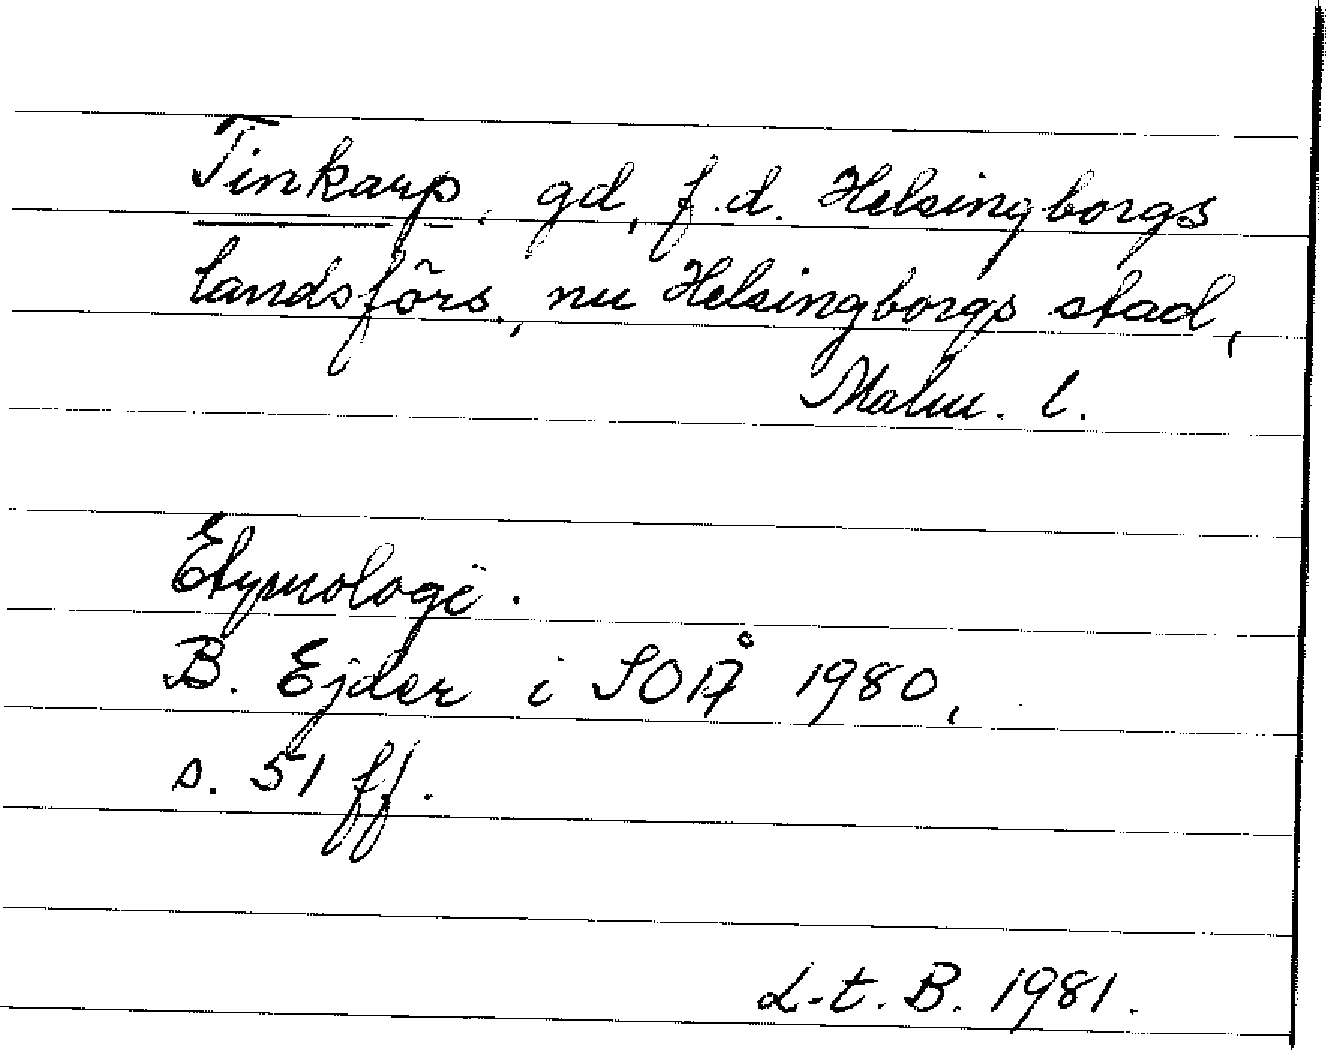 Tinkarp, gd, f.d. Helsingborgs
landsförs., nu Helsingborgs stad,
Malm. l.
Etymologi.
B. Ejder i SOÅ 1980,
s. 51 ff.
L-t. B. 1981.